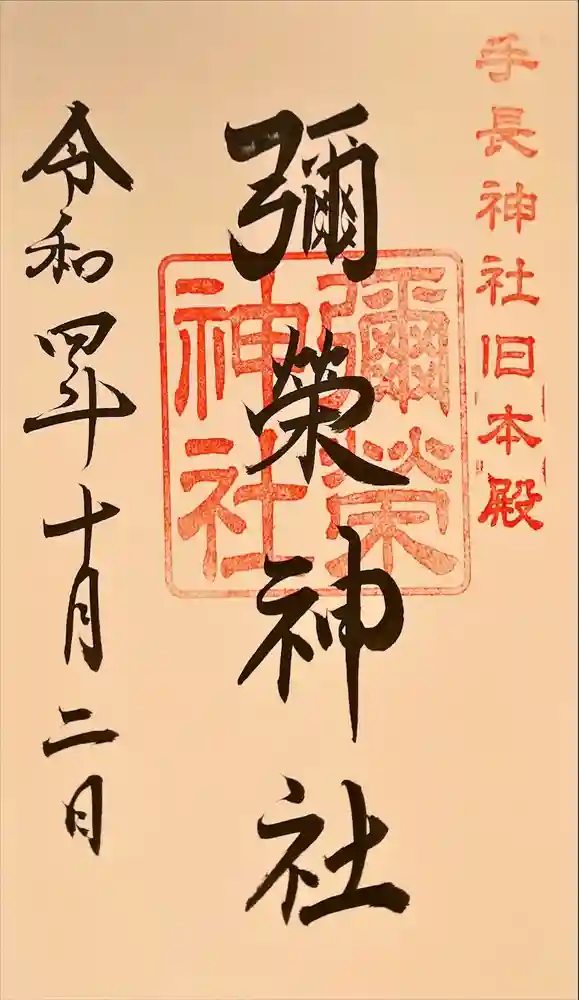 手長神社旧本殿
彌榮神社
彌榮
神社
令和四年十月二日